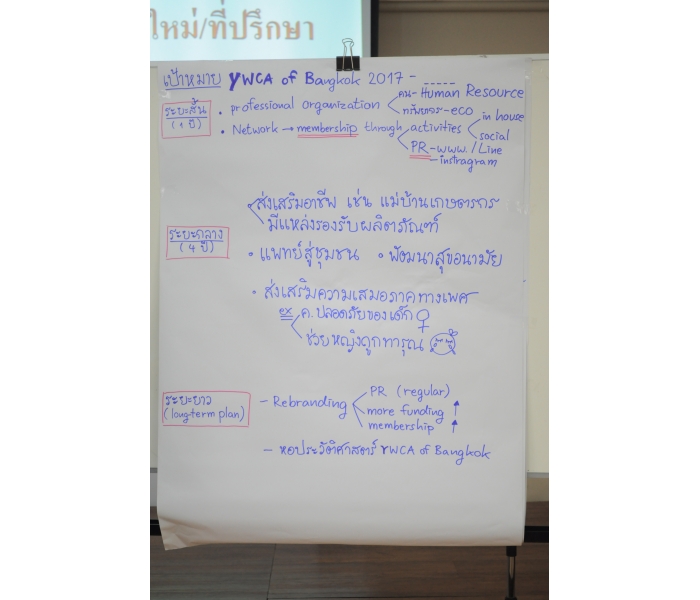 ใหม่/ที่ปรึกษา
เป้าหมาย YWCA of Bangkok 2017 -
ระยะสั้น
(1 ปี)
• professional organization
คน - Human Resource
ทรัพยากร - eco
• Network → membership through activities
in house
social
PR - www. / Line
- instragram
ระยะกลาง
(4 ปี)
ส่งเสริมอาชีพ เช่น แม่บ้านเกษตรกร
มีแหล่งรองรับผลิตภัณฑ์
• แพทย์สู่ชุมชน • พัฒนาสุขอนามัย
• ส่งเสริมความเสมอภาคทางเพศ
ex ค.ปลอดภัยของเด็ก ♀
ช่วยหญิงถูกทารุณ
ระยะยาว
(long-term plan)
- Rebranding
PR (regular)
more funding ↑
membership ↑
- หอประวัติศาสตร์ YWCA of Bangkok